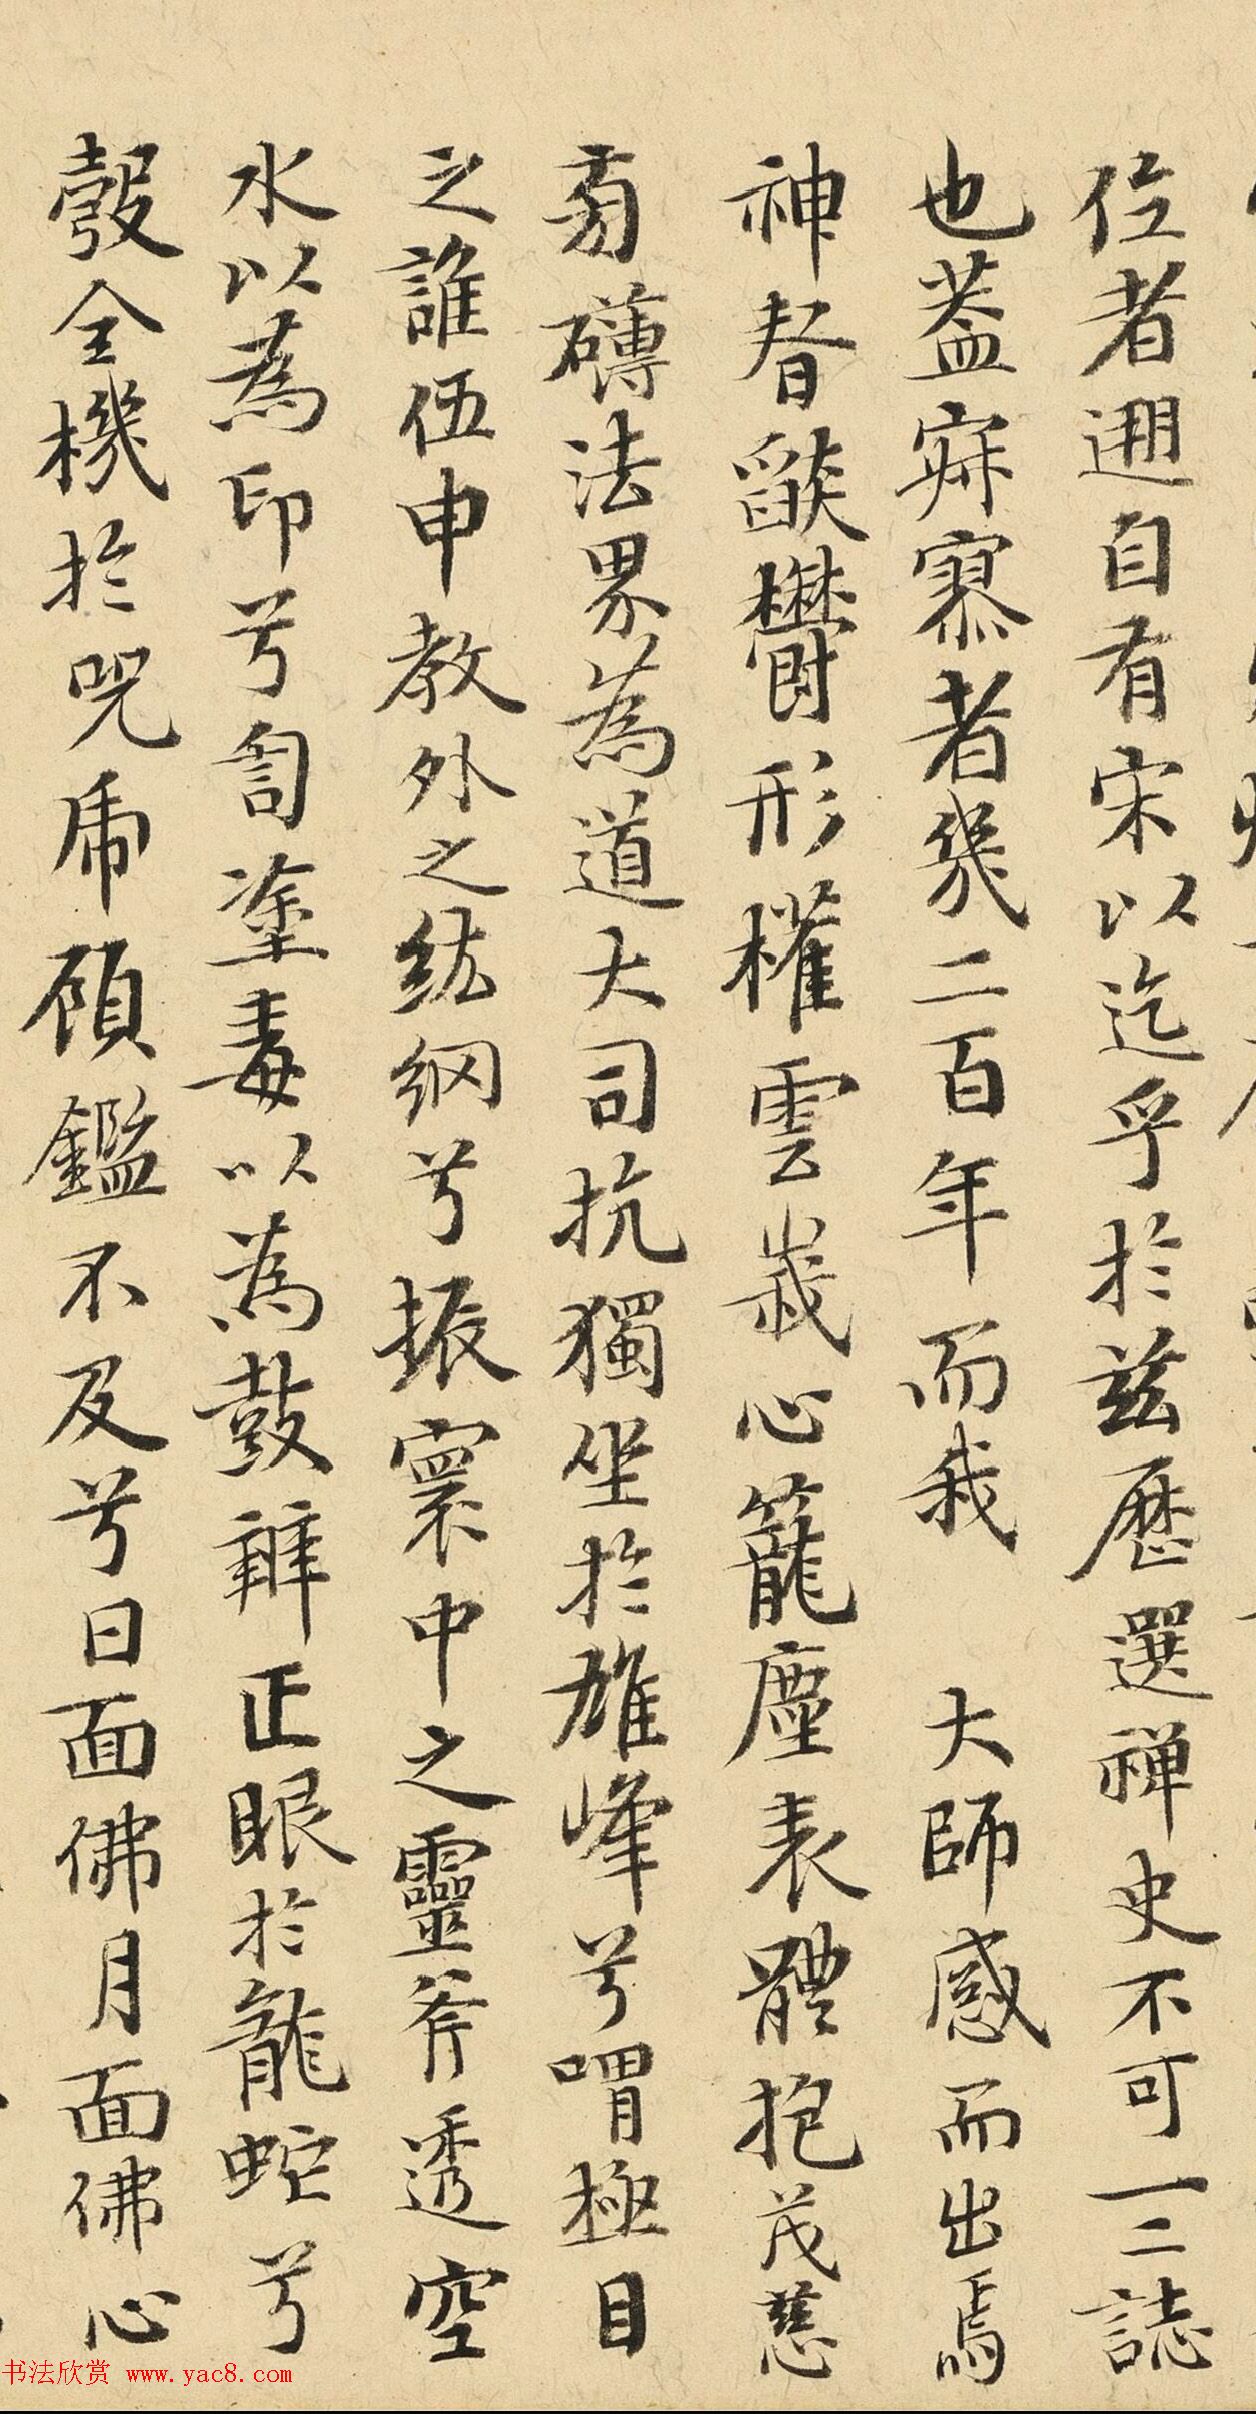 位者迥自有宋以迄乎於茲歷選禪史不可一二誌
也蓋寂寥者幾二百年而我大師感而出焉
神春燄鬱形權雲嶻心籠塵表體抱茂慈
磚法界為道大司抗獨坐於雄峰兮喟極目
之誰伍申教外之紘綱兮振寰中之靈斧透空
水以為印兮匋塗毒以為鼓辨正眼於龍蛇兮
彀全機於咒虎顧鑑不及兮日面佛月面佛心
书法欣赏 www.yac8.com